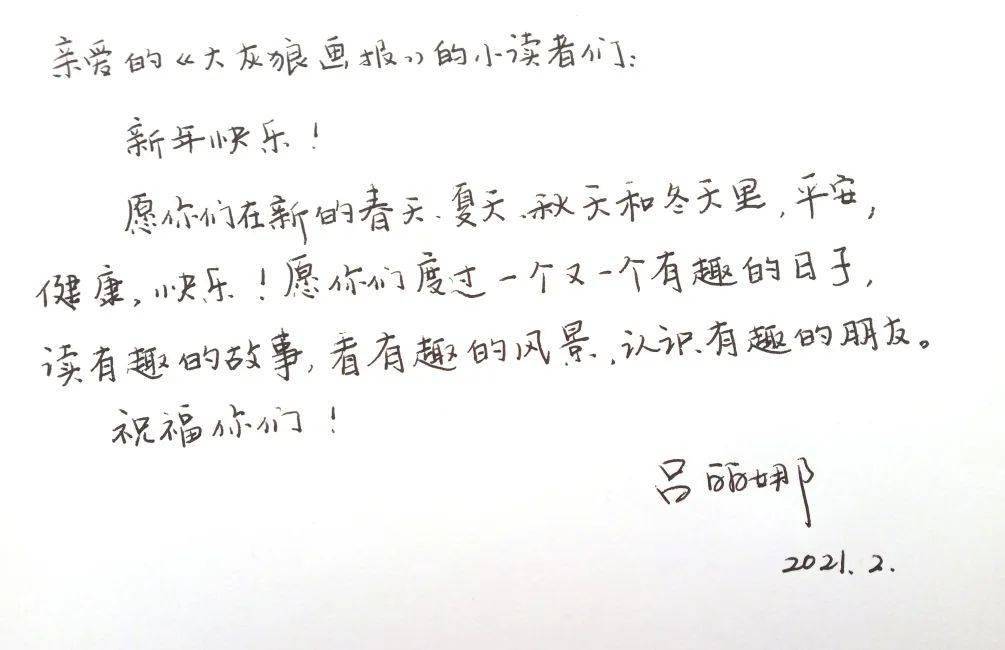 亲爱的《大灰狼画报》的小读者们:
新年快乐!
愿你们在新的春天、夏天、秋天和冬天里,平安,
健康,快乐!愿你们度过一个又一个有趣的日子,
读有趣的故事,看有趣的风景,认识有趣的朋友。
祝福你们!
吕丽娜
2021.2.